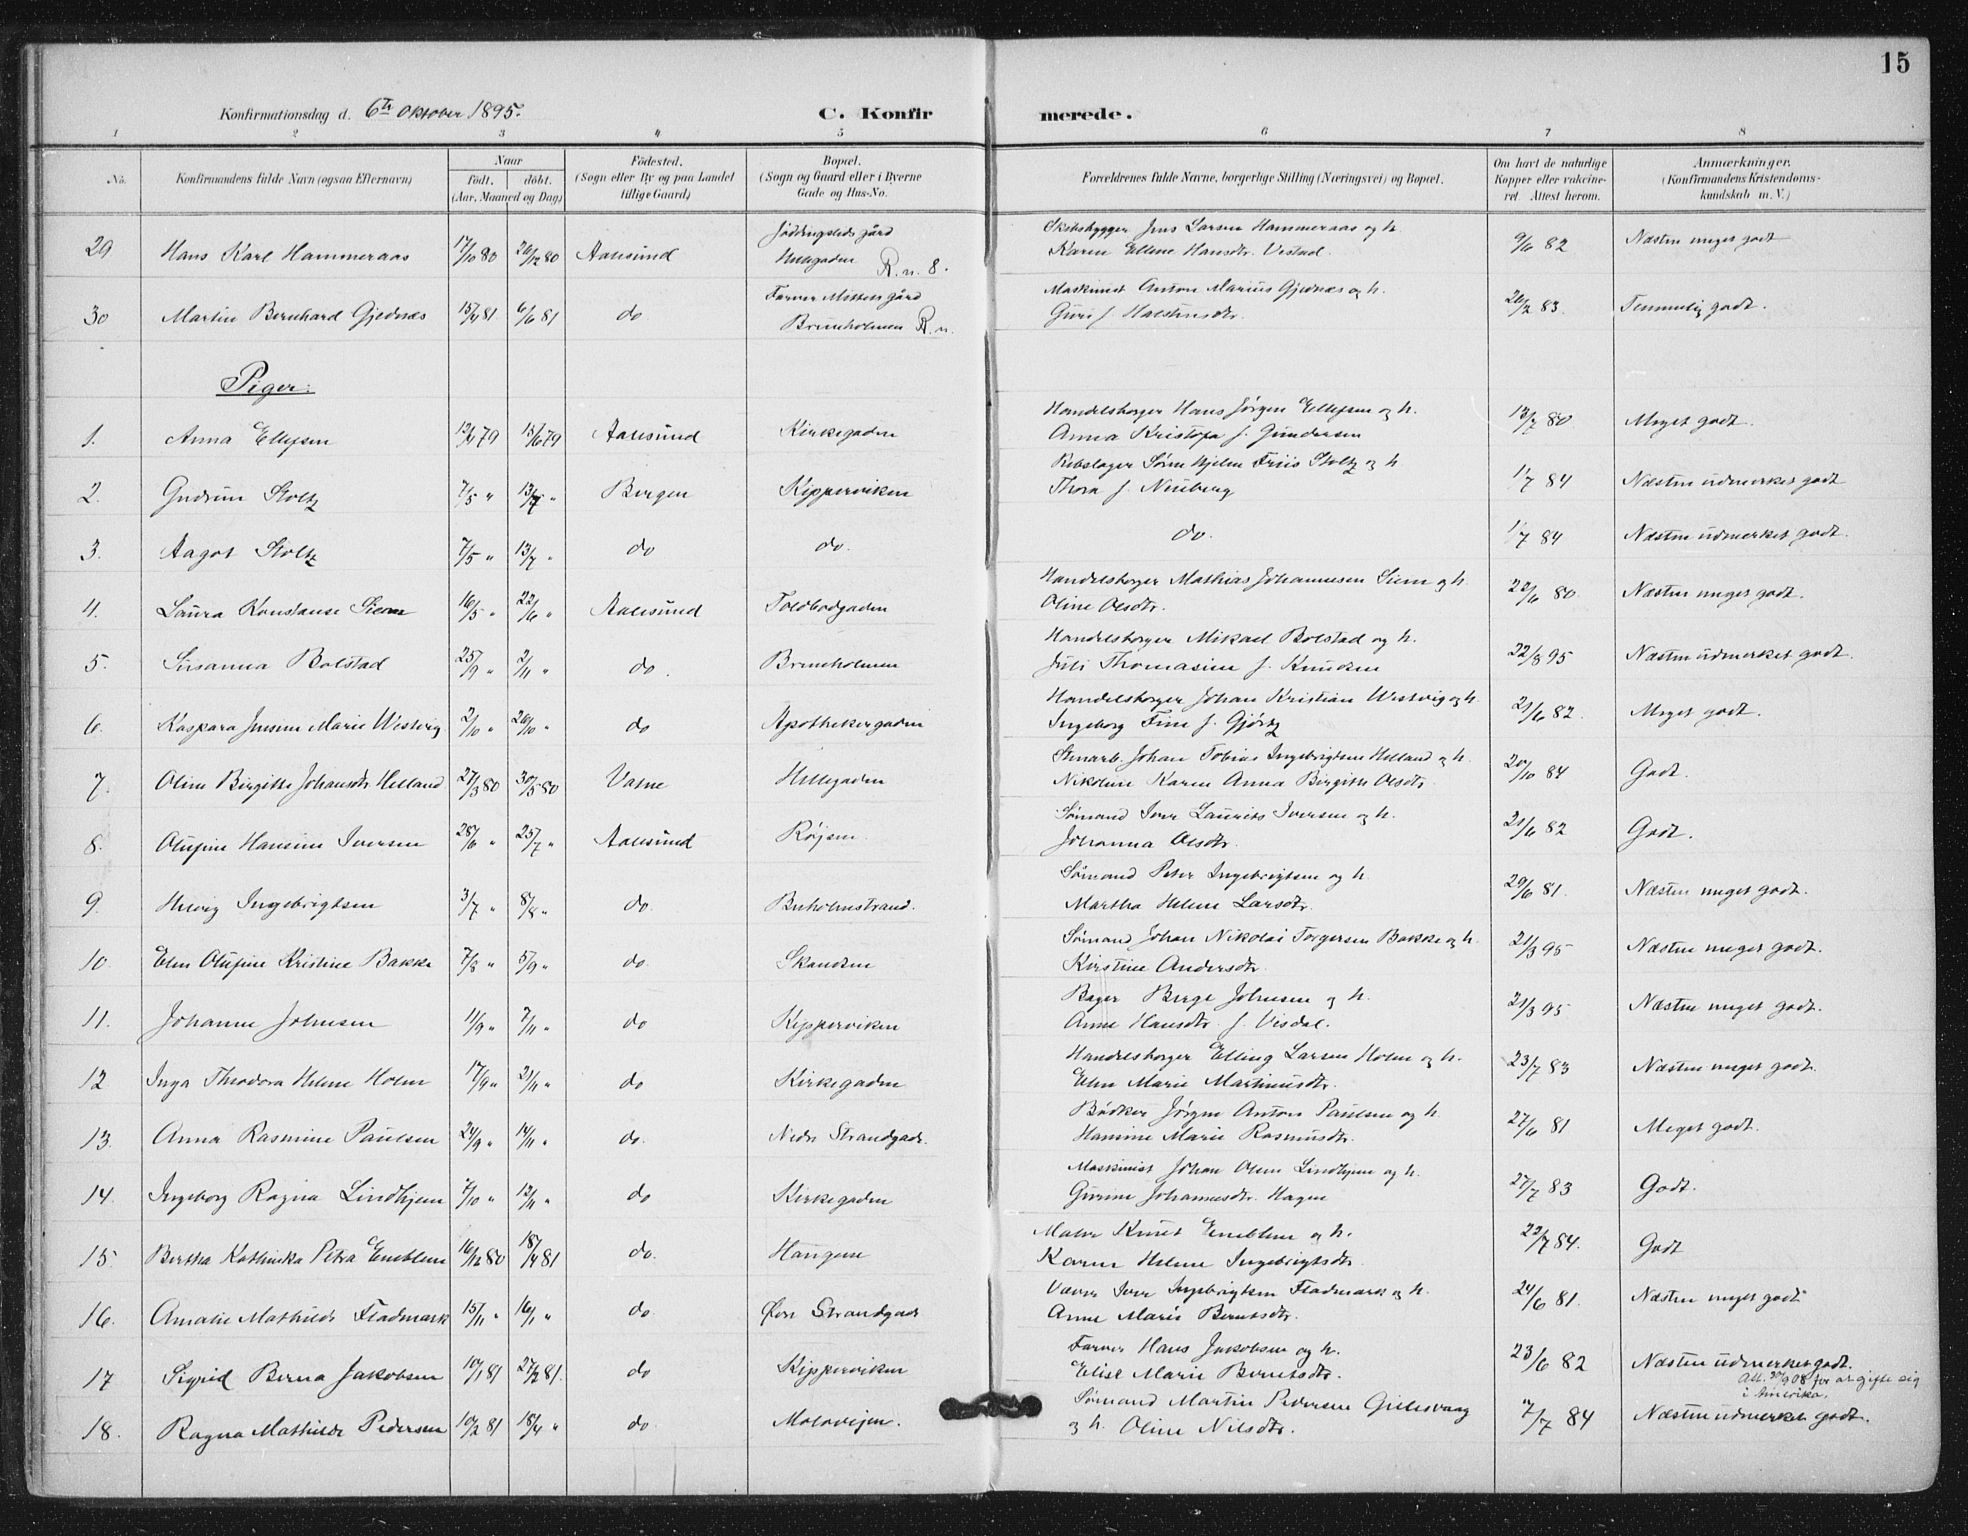 15
Konfirmationsdag d. 6te Oktober 1895.
C. Konfirmerede.
1 2 3 4 5 6 7 8
No.
Konfirmandens fulde Navn (ogsaa Efternavn)
Naar
født. døbt.
(Aar, Maaned og Dag)
Fødested.
(Sogn eller By og paa Landet
tillige Gaard)
Bopæl.
(Sogn og Gaard eller i Byerne
Gade og Hus-No.
Forældrenes fulde Navne, borgerlige Stilling (Næringsvei) og Bopæl.
Om havt de naturlige
Kopper eller vakcine-
ret. Attest herom.
Anmærkninger.
(Konfirmandens Kristendoms-
kundskab m. V.)
29 Hans Karl Hammeraas 17/10 80 26/12 80 Aalesund gård Hellegaden R. n. 8. Skibsbygger Jens Larsen Hammeraas og h.
Karen Ellene Hansdtr. Vestad. 9/6 82 Næsten meget godt
30 Martin Bernhard Gjednæs 15/4 81 6/6 81 do Farver gård Brunholmen R. n. Maskinist Anton Marius Gjednæs og h.
Guri f. Halstensdtr. 26/2 83. Temmelig godt.
Piger:
1. Anna Ellefsen 12/4 79 15/6 79 Aalesund Kirkegaden Handelsborger Hans Jørgen Ellefsen og h.
Anna Kristofa f. Gundersen 13/7 80 Meget godt.
2. Gudrun Stoltz 7/5 " 13/7 " Bergen Kipperviken Rebslager Sørn Hjelm Friis Stoltz og h
Thora f. Neuberg 1/7 84 Næsten udmerket godt
3. Aagot Stoltz 7/5 " 13/7 " do do. do. 1/7 84 Næsten udmerket godt.
4. Laura Konstanse Siem 16/5 " 22/6 " Aalesund Toldbodgaden Handelsborger Mathias Johannesen Siem og h.
Oline Olsdtr. 22/6 80 Næsten meget godt.
5. Susanna Bolstad 25/9 " 2/11 " do. Brunholmen Handelsborger Mikael Bolstad og h.
Juli Thomasine f. Knudsen 22/8 95 Næsten udmerket godt.
6. Kaspara Jensine Marie Westvig 2/10 " 26/10 " do Apothekergaden Handelsborger Johan Kristian Westvig og h
Ingeborg Fine f. Gjørtz 21/6 82. Meget godt.
7. Oline Birgitte Johansdtr Helland 27/3 80 30/5 80 Vatne Hellegaden Stenarb. Johan Tobias Ingebrigtsen Helland og h
Nikoline Karen Anna Birgitte Olsdtr. 20/10 84 Godt.
8. Olufine Hansine Iversen 28/6 " 25/7 " Aalesund Røjsen Sømand Iver Laurits Iversen og h.
Johanna Olsdtr. 21/6 82 Godt.
9. Helvig Ingebrigtsen 3/7 " 8/8 " do. Buholmstrand. Sømand Peter Ingebrigtsen og h.
Martha Helene Larsdtr. 29/6 81. Næsten meget godt.
10. Elen Olufine Kristine Bakke 7/8 " 5/9 " do. Skandsen Sømand Johan Nikolai Torgersen Bakke og h.
Kirstine Andersdtr. 21/3 95 Næsten meget godt.
11. Johanne Johnsen 11/9 " 7/11 " do Kipperviken Bager Birge Johnsen og h.
Anne Hansdtr. f. Visdal. 21/3 95 Næsten meget godt.
12 Inga Theodora Helene Holm 17/9 " 21/11 " do Kirkegaden Handelsborger Elling Larsen Holm og h.
Elen Marie Martinusdtr. 23/7 83 Næsten meget godt.
13. Anna Rasmine Paulsen 24/9 " 14/11 " do. Nedr Strandgade. Bødker Jørgen Anton Paulsen og h.
Hansine Marie Rasmusdtr. 27/6 81 Meget godt.
14. Ingeborg Ragna Lindhjem 7/10 " 12/11 " do Kirkegaden Maskinist Johan Olsen Lindhjem og h.
Gurine Johannesdtr. Hagen 27/7 83 Godt.
15. Bertha Kathinka Petra Emblem 16/12 80 18/4 81 do. Haugen Maler Knut Emblem og h.
Karen Helene Ingebrigtsdtr. 22/7 84. Godt
16. Amalie Mathilde Fladmark 15/11 " 16/1 " do. Øvre Strandgade Væver Iver Ingebrigtsen Fladmark og h.
Anne Marie Berntsdtr. 24/6 81. Næsten meget godt
17 Sigrid Berna Jakobsen 10/1 81 27/2 81. do Kipperviken Farver Hans Jakobsen og h.
Elise Marie Berntsdtr. 23/6 82 Næsten udmerket godt.
Att. 30/9 08 for at gifte sig
i Amerika.
18. Ragna Mathilde Pedersen 10/2 81 18/4 " do. Molovejen. Sømand Martin Pedersen Gillesvaag
og h. Oline Nilsdtr. 7/7 84 Næsten udmerket godt.